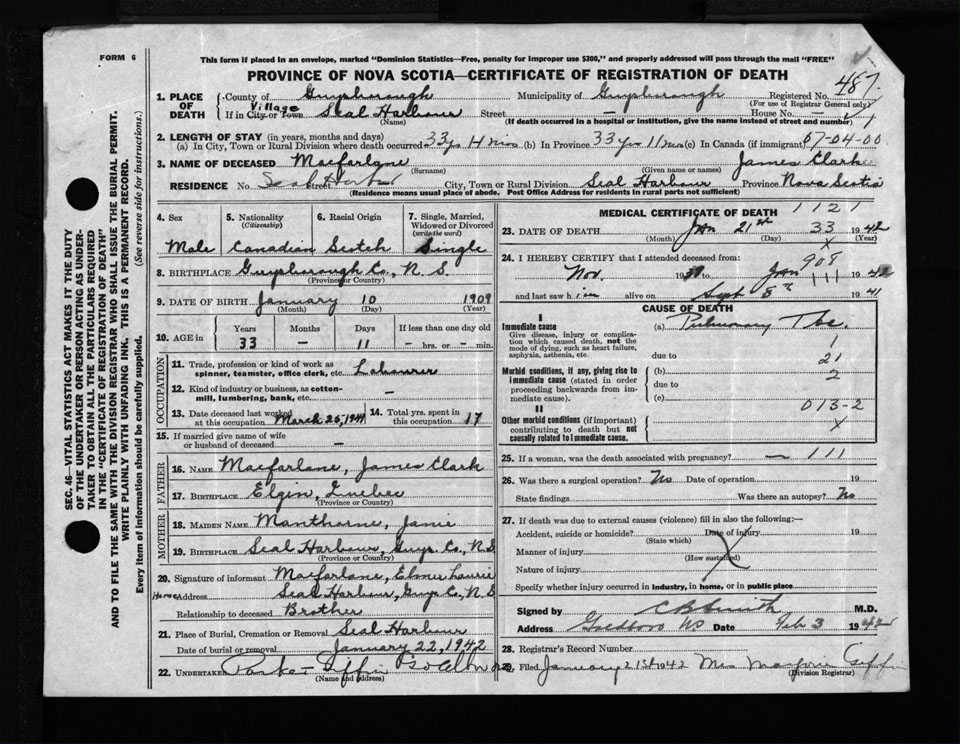 FORM 6
This form if placed in an envelope, marked "Dominion Statistics—Free, penalty for improper use $300," and properly addressed will pass through the mail "FREE"
PROVINCE OF NOVA SCOTIA—CERTIFICATE OF REGISTRATION OF DEATH
487
1. PLACE OF DEATH County of Guysborough Municipality of Guysborough Registered No.
(For use of Registrar General only)
Village
If in City or Town Seal Harbour Street — House No.
(Name) (If death occurred in a hospital or institution, give the name instead of street and number)
2. LENGTH OF STAY (in years, months and days)
(a) In City, Town or Rural Division where death occurred 33 yrs (b) In Province 33 yrs (c) In Canada (if immigrant) 67-04-00
3. NAME OF DECEASED Macfarlane James Clark
(Surname) (Given name or names)
RESIDENCE No. Street Seal Harbour City, Town or Rural Division Seal Harbour Province Nova Scotia
(Residence means usual place of abode. Post Office Address for residents in rural parts not sufficient)
4. Sex 5. Nationality (Citizenship) 6. Racial Origin 7. Single, Married, Widowed or Divorced (write the word)
Male Canadian Scotch Single
8. BIRTHPLACE Guysborough Co., N. S.
(Province or Country)
9. DATE OF BIRTH January 10 1909
(Month) (Day) (Year)
10. AGE in Years Months Days If less than one day old
33 — 11 — hrs. or — min.
OCCUPATION
11. Trade, profession or kind of work as spinner, teamster, office clerk, etc. Labourer
12. Kind of industry or business, as cotton-mill, lumbering, bank, etc. —
13. Date deceased last worked at this occupation March 25, 1941 14. Total yrs. spent in this occupation 17
15. If married give name of wife or husband of deceased —
FATHER
16. NAME Macfarlane, James Clark
17. BIRTHPLACE Elgin, Quebec
(Province or Country)
MOTHER
18. MAIDEN NAME Manthorne, Janie
19. BIRTHPLACE Seal Harbour, Guys. Co., N.S.
(Province or Country)
20. Signature of informant Macfarlane, Elmer Laurie
Home Address Seal Harbour, Guys Co, N.S.
Relationship to deceased Brother
21. Place of Burial, Cremation or Removal Seal Harbour
Date of burial or removal January 22, 1942
22. UNDERTAKER Giffin
(Name and address)
MEDICAL CERTIFICATE OF DEATH 1121
23. DATE OF DEATH Jan 21st 33 1942
(Month) (Day) X (Year)
24. I HEREBY CERTIFY that I attended deceased from: 908
Nov. 19 to Jan 111 1942
and last saw him alive on Sept 8th 1941
CAUSE OF DEATH
I
Immediate cause (a) Pulmonary Tbc.
Give disease, injury or complication which caused death, not the mode of dying, such as heart failure, asphyxia, asthenia, etc. 1
due to 21
Morbid conditions, if any, giving rise to immediate cause (stated in order proceeding backwards from immediate cause). (b) 2
due to
(c) 013-2
II
Other morbid conditions (if important) contributing to death but not causally related to immediate cause. X
25. If a woman, was the death associated with pregnancy? — 111
26. Was there a surgical operation? No Date of operation 19
State findings Was there an autopsy? No
27. If death was due to external causes (violence) fill in also the following:—
Accident, suicide or homicide? Date of injury 19
(State which)
Manner of injury
(How sustained)
Nature of injury
Specify whether injury occurred in industry, in home, or in public place
Signed by C B Smith M.D.
Address Goldboro NS Date Feb 3 1942
28. Registrar's Record Number
29. Filed January 21st 1942 Mrs Marjorie Giffin
(Division Registrar)
SEC. 46—VITAL STATISTICS ACT MAKES IT THE DUTY
OF THE UNDERTAKER OR PERSON ACTING AS UNDER-
TAKER TO OBTAIN ALL THE PARTICULARS REQUIRED
IN THE "CERTIFICATE OF REGISTRATION OF DEATH"
AND TO FILE THE SAME WITH THE DIVISION REGISTRAR WHO SHALL ISSUE THE BURIAL PERMIT.
WRITE PLAINLY WITH UNFADING INK. THIS IS A PERMANENT RECORD.
Every item of information should be carefully supplied. (See reverse side for instructions.)